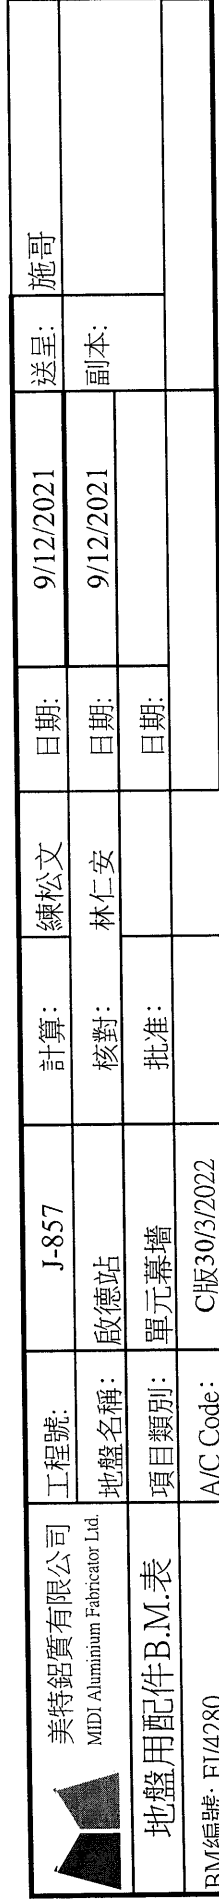 美特鋁質有限公司
MIDI Aluminium Fabricator Ltd.
工程號: J-857 計算: 練松文 日期: 9/12/2021 送呈: 施哥
地盤名稱: 啟德站 核對: 林仁安 日期: 9/12/2021 副本:
地盤用配件B.M.表 項目類別: 單元幕墻 批准: 日期:
BM編號: EJ4280 A/C Code: C版30/3/2022